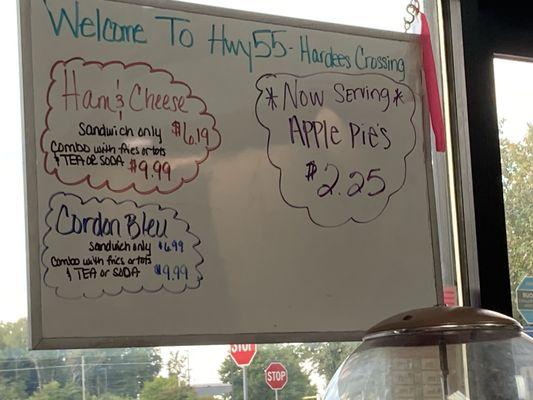 Welcome To Hwy55 - Hardees Crossing
Ham & Cheese
Sandwich only $6.19
Combo with fries or tots
& TEA or SODA $9.99
Cordon Bleu
Sandwich only $6.99
Combo with fries or tots
& TEA or SODA $9.99
*Now Serving*
Apple Pie's
$2.25
STOP
STOP